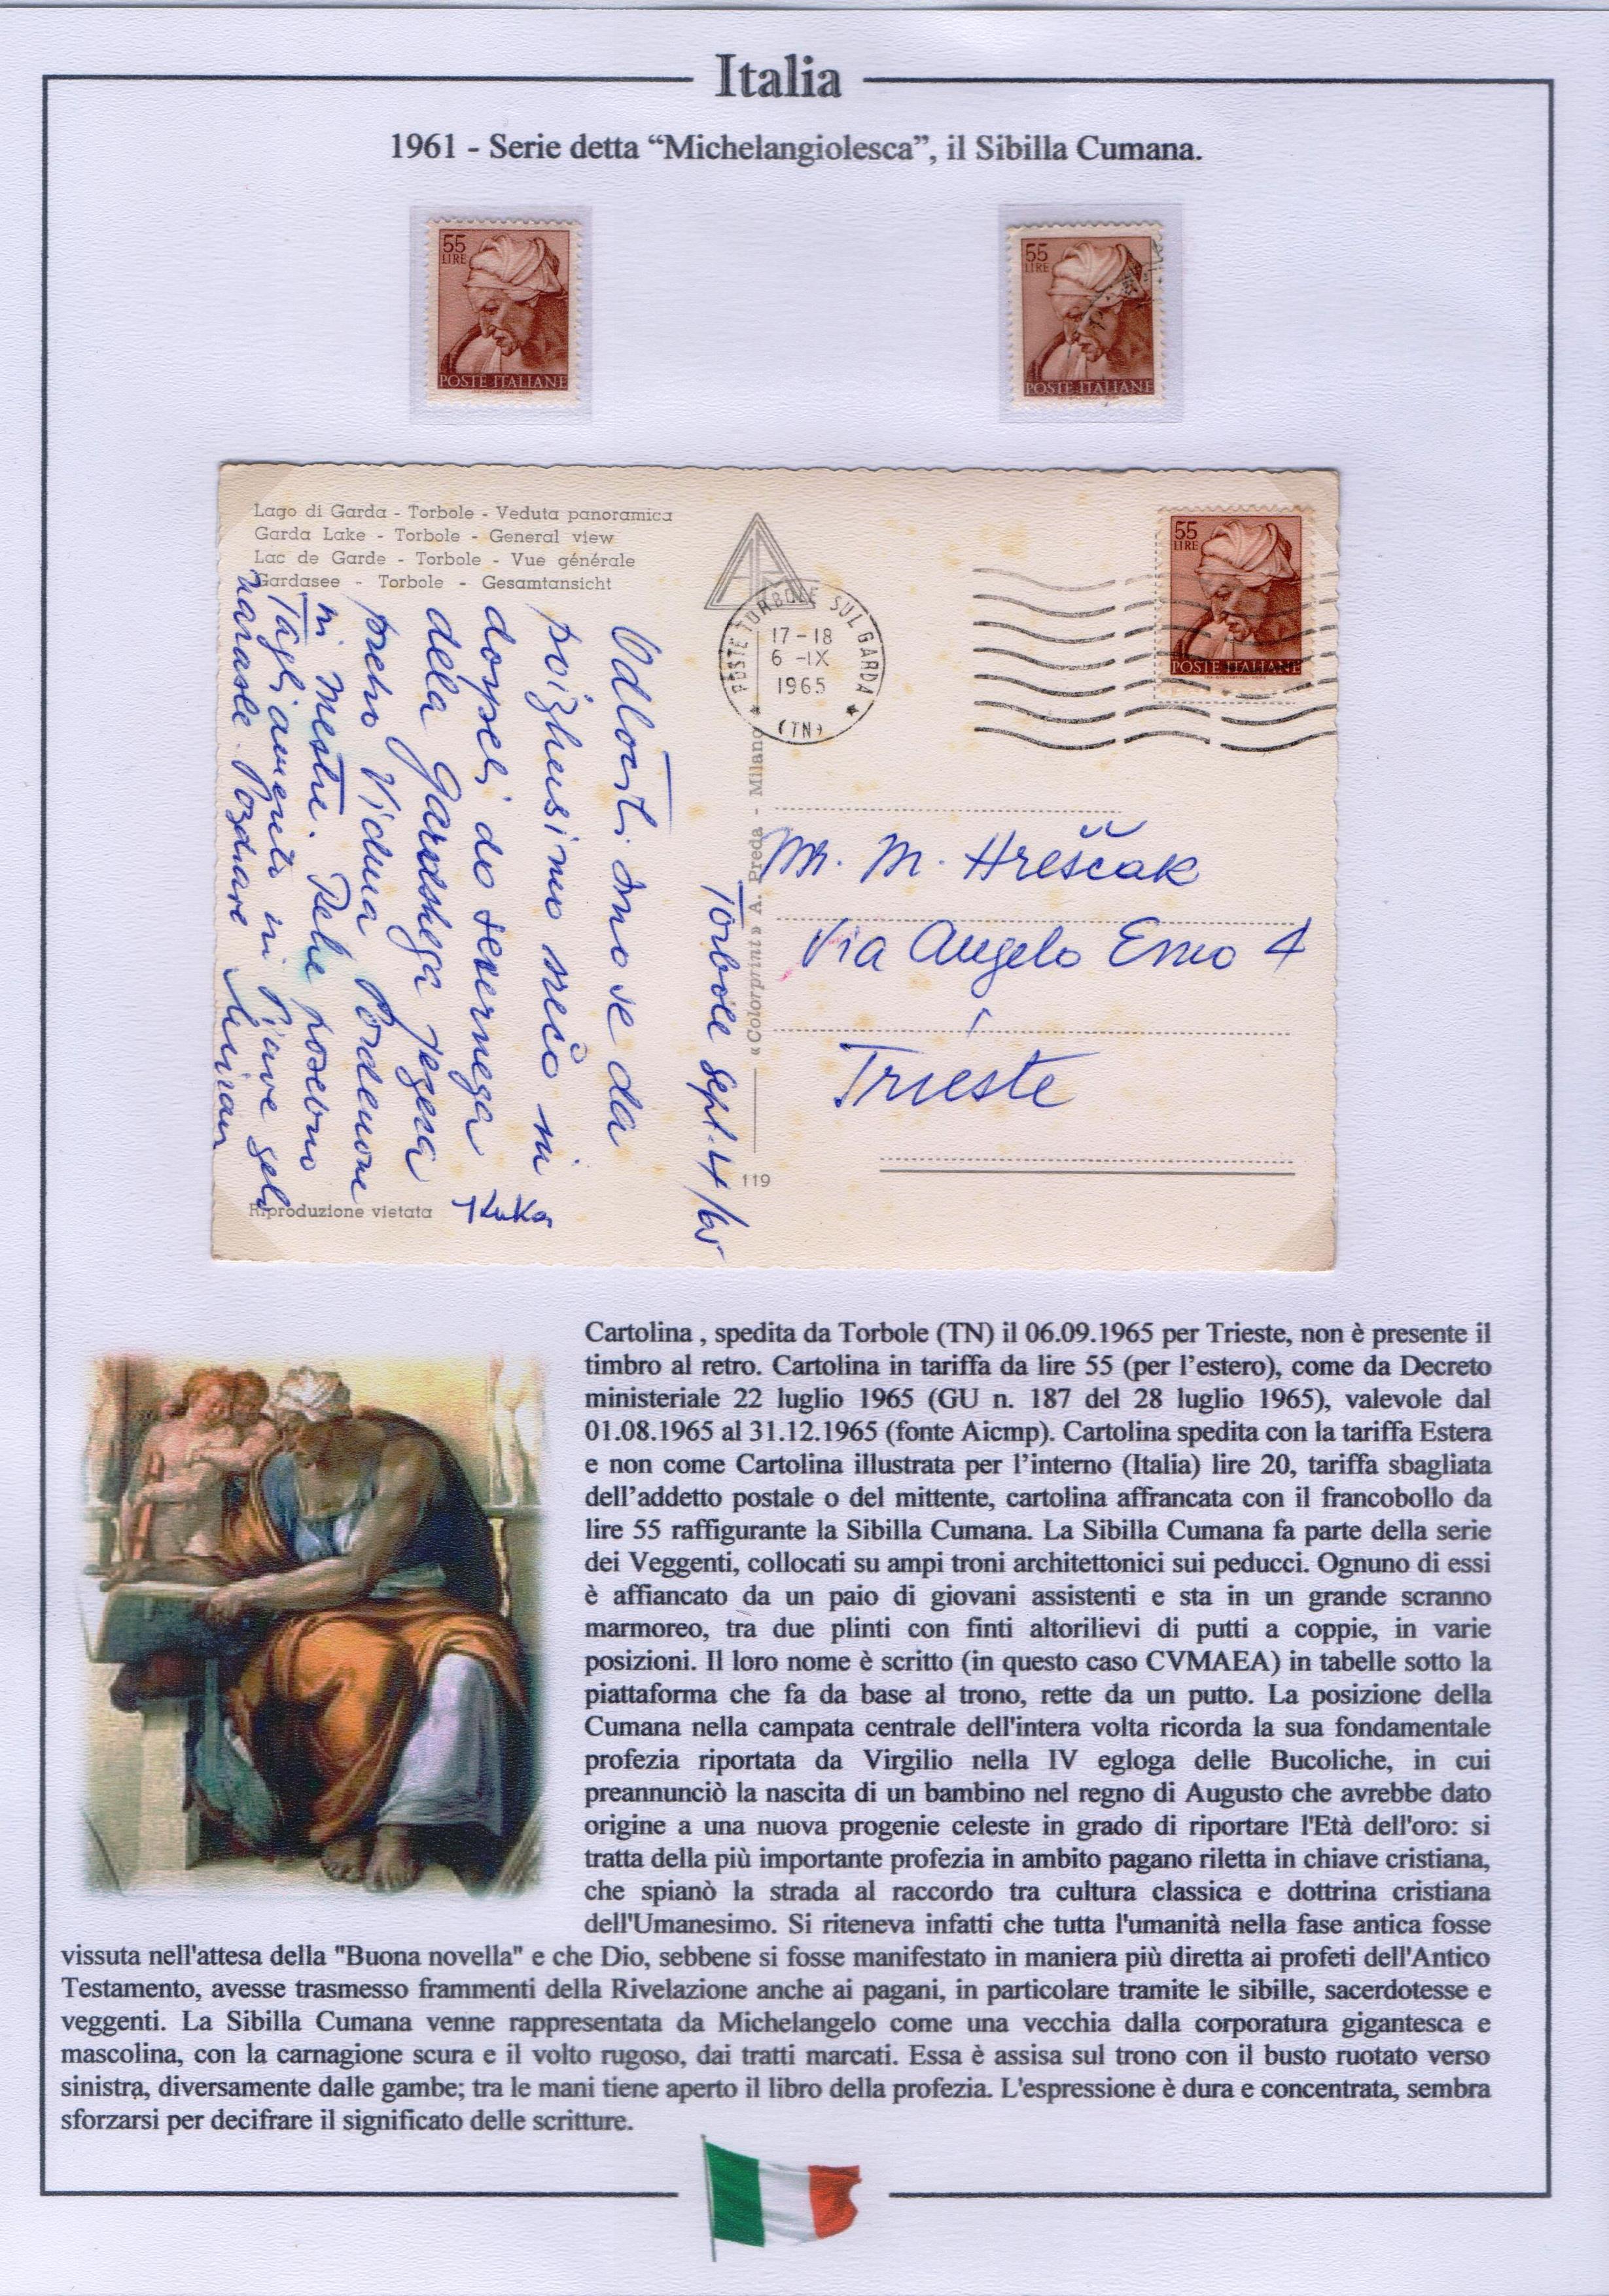 Italia
1961 - Serie detta “Michelangiolesca”, il Sibilla Cumana.
55
LIRE
POSTE ITALIANE
55
LIRE
POSTE ITALIANE
Lago di Garda - Torbole - Veduta panoramica
Garda Lake - Torbole - General view
Lac de Garde - Torbole - Vue générale
Gardasee - Torbole - Gesamtansicht
POSTE TORBOLE SUL GARDA
17-18
6 -IX
1965
(TN)
55
LIRE
POSTE ITALIANE
Torbole Sept. 4/65
Odločili smo se da
poizkusimo srečo mi
dospeli do severnega
dela Gardskega jezera
preko Vidma Pordenone
in Mestre. Reke posebno
Tagliamento in Piave zelo
narasle. Pozdrave Mirian
Kuka
Mr. M. Hreščak
Via Angelo Emo 4
Trieste
«Colorprint» A. Preda - Milano
119
Riproduzione vietata
Cartolina , spedita da Torbole (TN) il 06.09.1965 per Trieste, non è presente il
timbro al retro. Cartolina in tariffa da lire 55 (per l’estero), come da Decreto
ministeriale 22 luglio 1965 (GU n. 187 del 28 luglio 1965), valevole dal
01.08.1965 al 31.12.1965 (fonte Aicmp). Cartolina spedita con la tariffa Estera
e non come Cartolina illustrata per l’interno (Italia) lire 20, tariffa sbagliata
dell’addetto postale o del mittente, cartolina affrancata con il francobollo da
lire 55 raffigurante la Sibilla Cumana. La Sibilla Cumana fa parte della serie
dei Veggenti, collocati su ampi troni architettonici sui peducci. Ognuno di essi
è affiancato da un paio di giovani assistenti e sta in un grande scranno
marmoreo, tra due plinti con finti altorilievi di putti a coppie, in varie
posizioni. Il loro nome è scritto (in questo caso CVMAEA) in tabelle sotto la
piattaforma che fa da base al trono, rette da un putto. La posizione della
Cumana nella campata centrale dell'intera volta ricorda la sua fondamentale
profezia riportata da Virgilio nella IV egloga delle Bucoliche, in cui
preannunciò la nascita di un bambino nel regno di Augusto che avrebbe dato
origine a una nuova progenie celeste in grado di riportare l'Età dell'oro: si
tratta della più importante profezia in ambito pagano riletta in chiave cristiana,
che spianò la strada al raccordo tra cultura classica e dottrina cristiana
dell'Umanesimo. Si riteneva infatti che tutta l'umanità nella fase antica fosse
vissuta nell'attesa della "Buona novella" e che Dio, sebbene si fosse manifestato in maniera più diretta ai profeti dell'Antico
Testamento, avesse trasmesso frammenti della Rivelazione anche ai pagani, in particolare tramite le sibille, sacerdotesse e
veggenti. La Sibilla Cumana venne rappresentata da Michelangelo come una vecchia dalla corporatura gigantesca e
mascolina, con la carnagione scura e il volto rugoso, dai tratti marcati. Essa è assisa sul trono con il busto ruotato verso
sinistra, diversamente dalle gambe; tra le mani tiene aperto il libro della profezia. L'espressione è dura e concentrata, sembra
sforzarsi per decifrare il significato delle scritture.